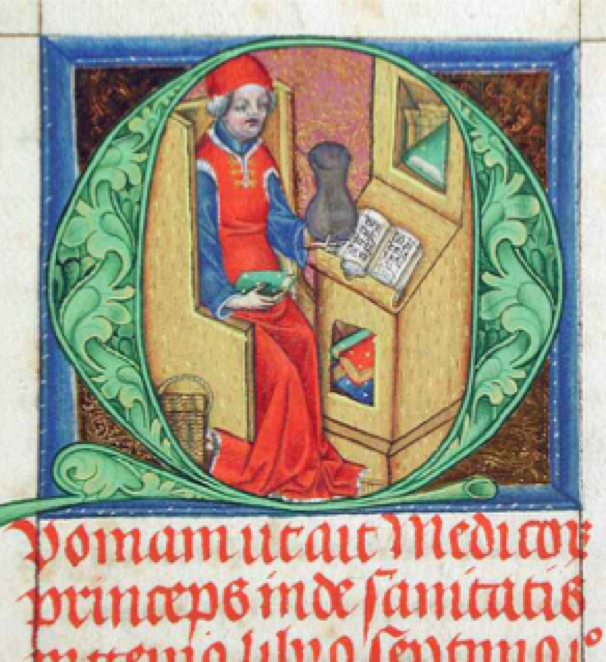 Quoniam ut ait Medicoꝝ
princeps in de sanitatis
ingenio libro septimo